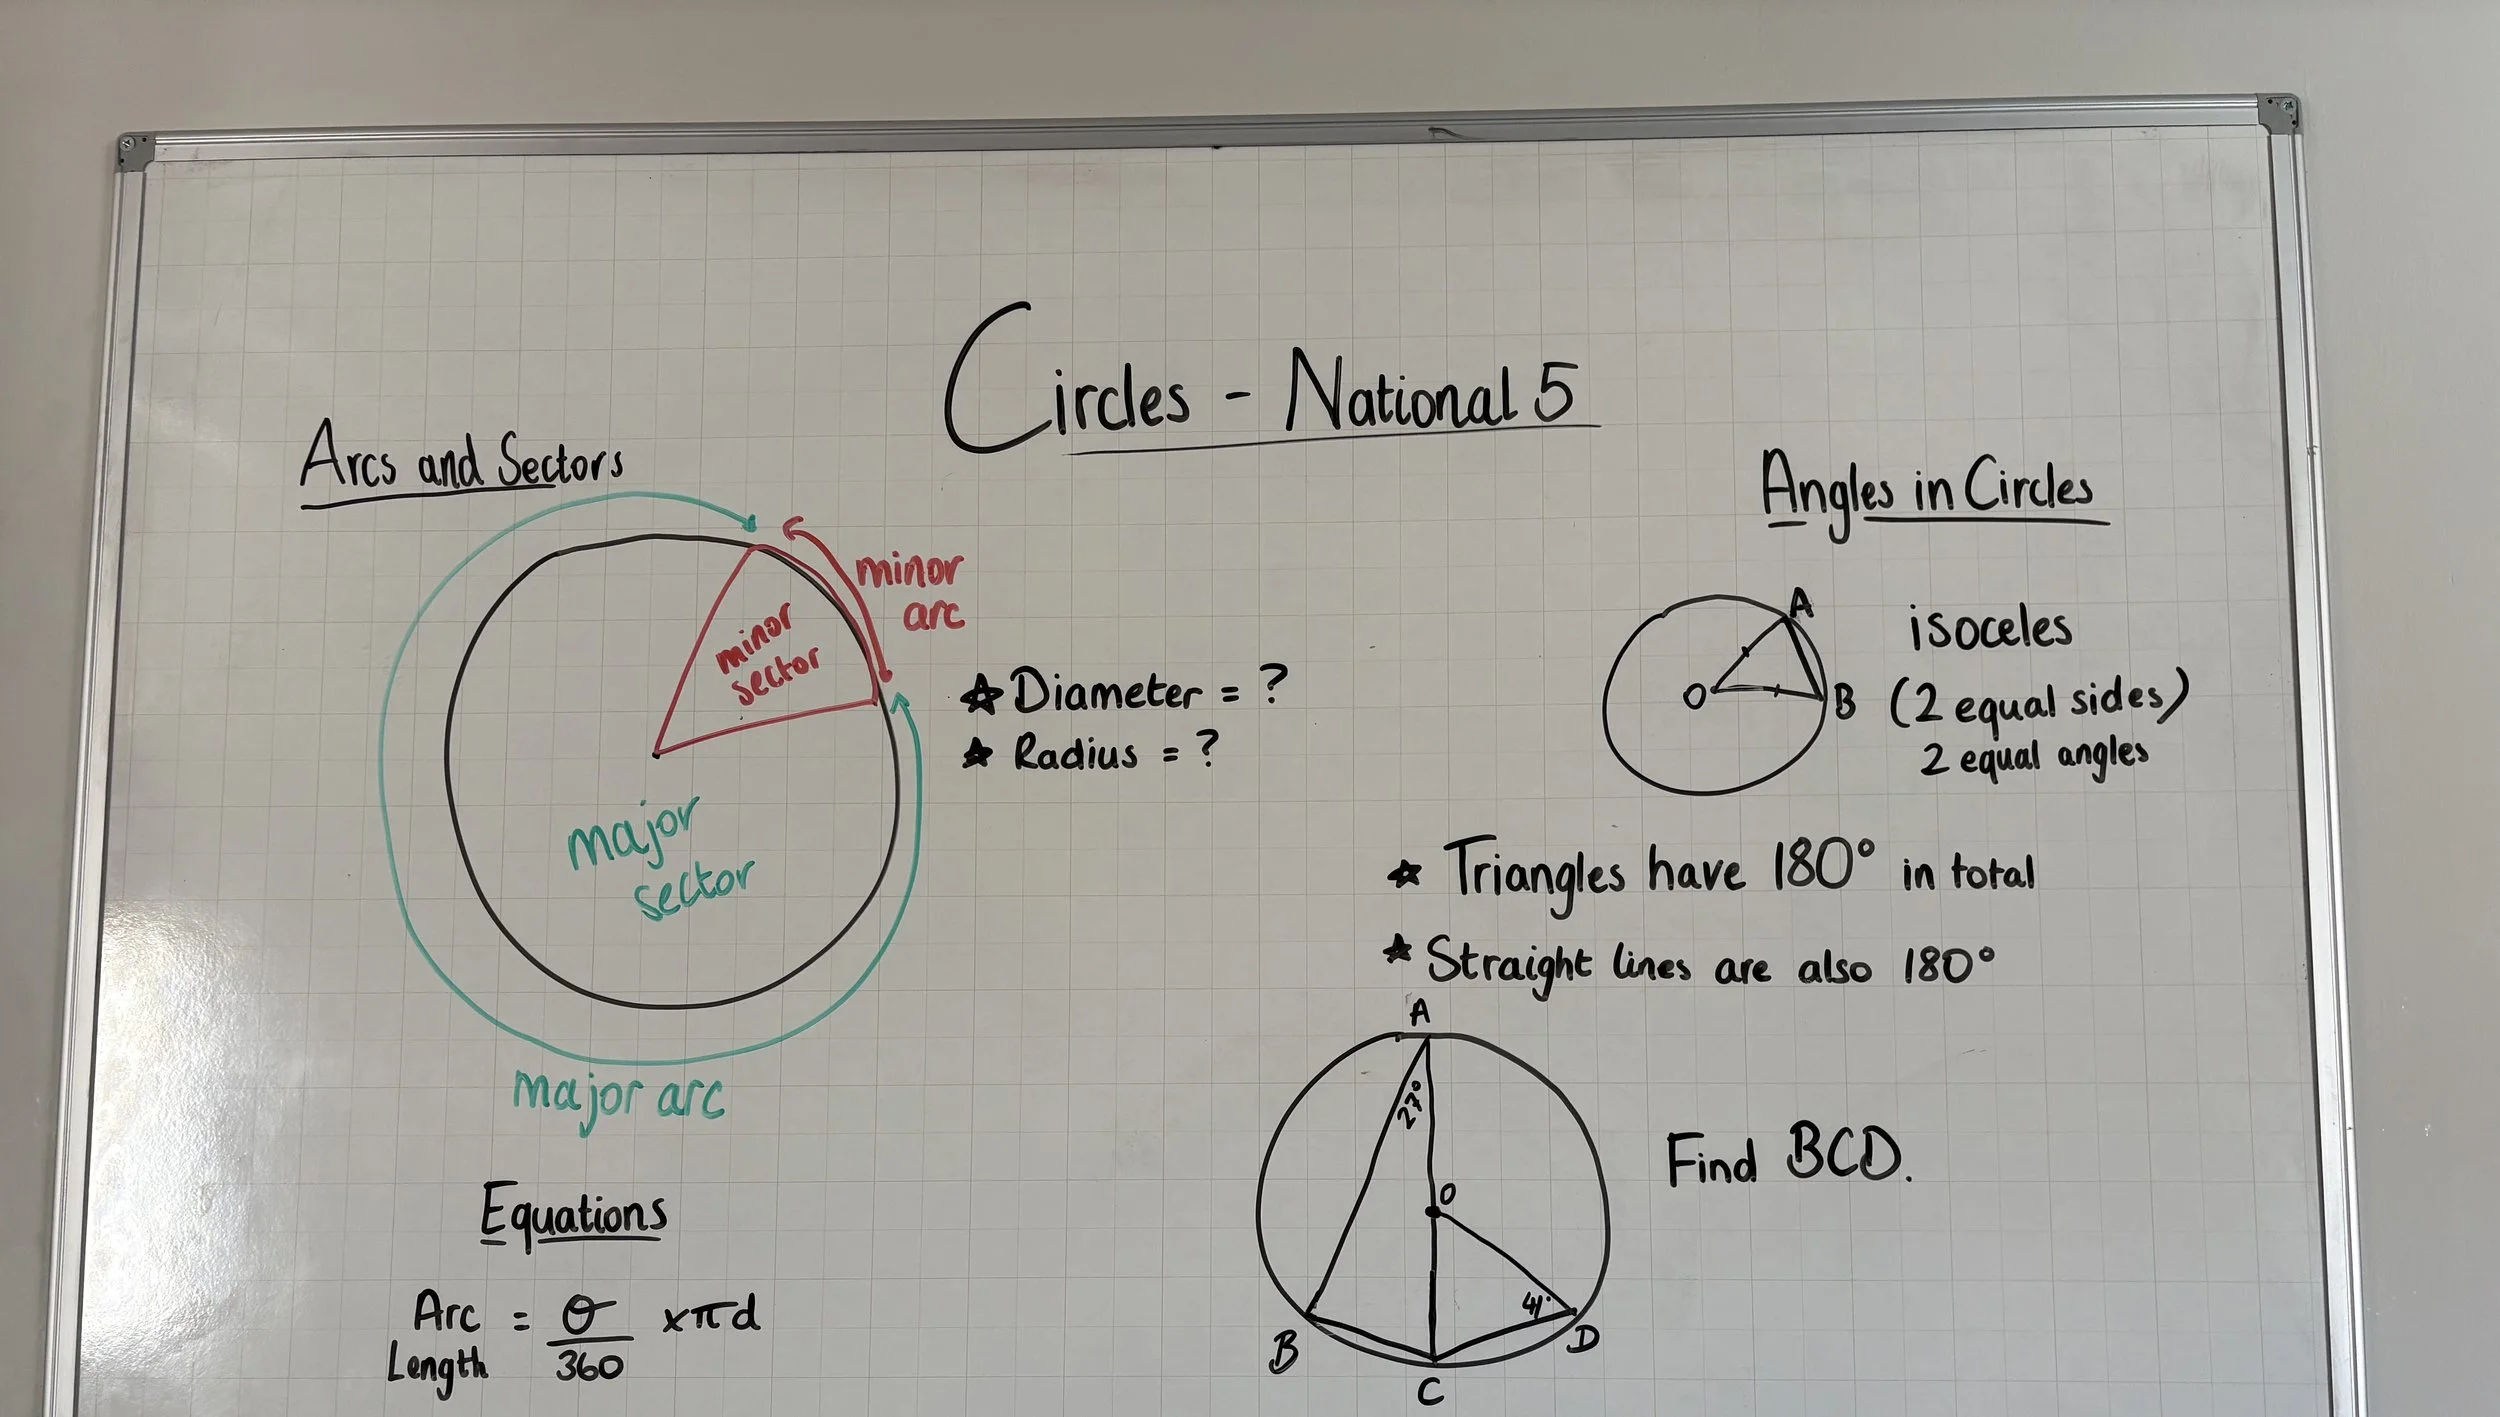 Circles - National 5
Arcs and Sectors
minor
arc
minor
sector
major
sector
major arc
★ Diameter = ?
★ Radius = ?
Equations
Arc
Length = θ/360 × πd
Angles in Circles
A
O
B
isoceles
(2 equal sides)
2 equal angles
★ Triangles have 180° in total
★ Straight lines are also 180°
A
O
41°
B
D
C
Find BCD.